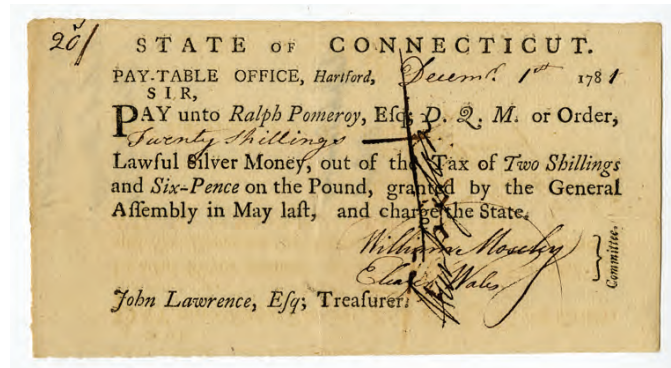 20/
STATE OF CONNECTICUT.
PAY-TABLE OFFICE, Hartford, Decemr. 1st 1781
SIR,
PAY unto Ralph Pomeroy, Eſq; D. Q. M. or Order,
Twenty Shillings
Lawful Silver Money, out of the Tax of Two Shillings
and Six-Pence on the Pound, granted by the General
Aſſembly in May laſt, and charge the State.
William Moseley
Eleazr Wales
Committee.
John Lawrence, Eſq; Treaſurer.